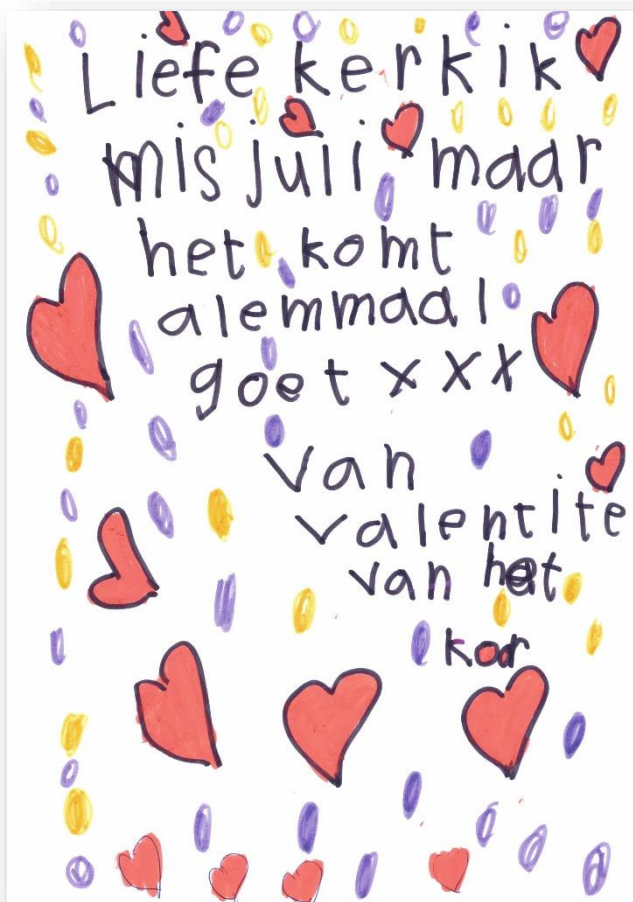 Liefe kerk ik
mis juli maar
het komt
alemmaal
goet xxx
van
valentite
van het
kor